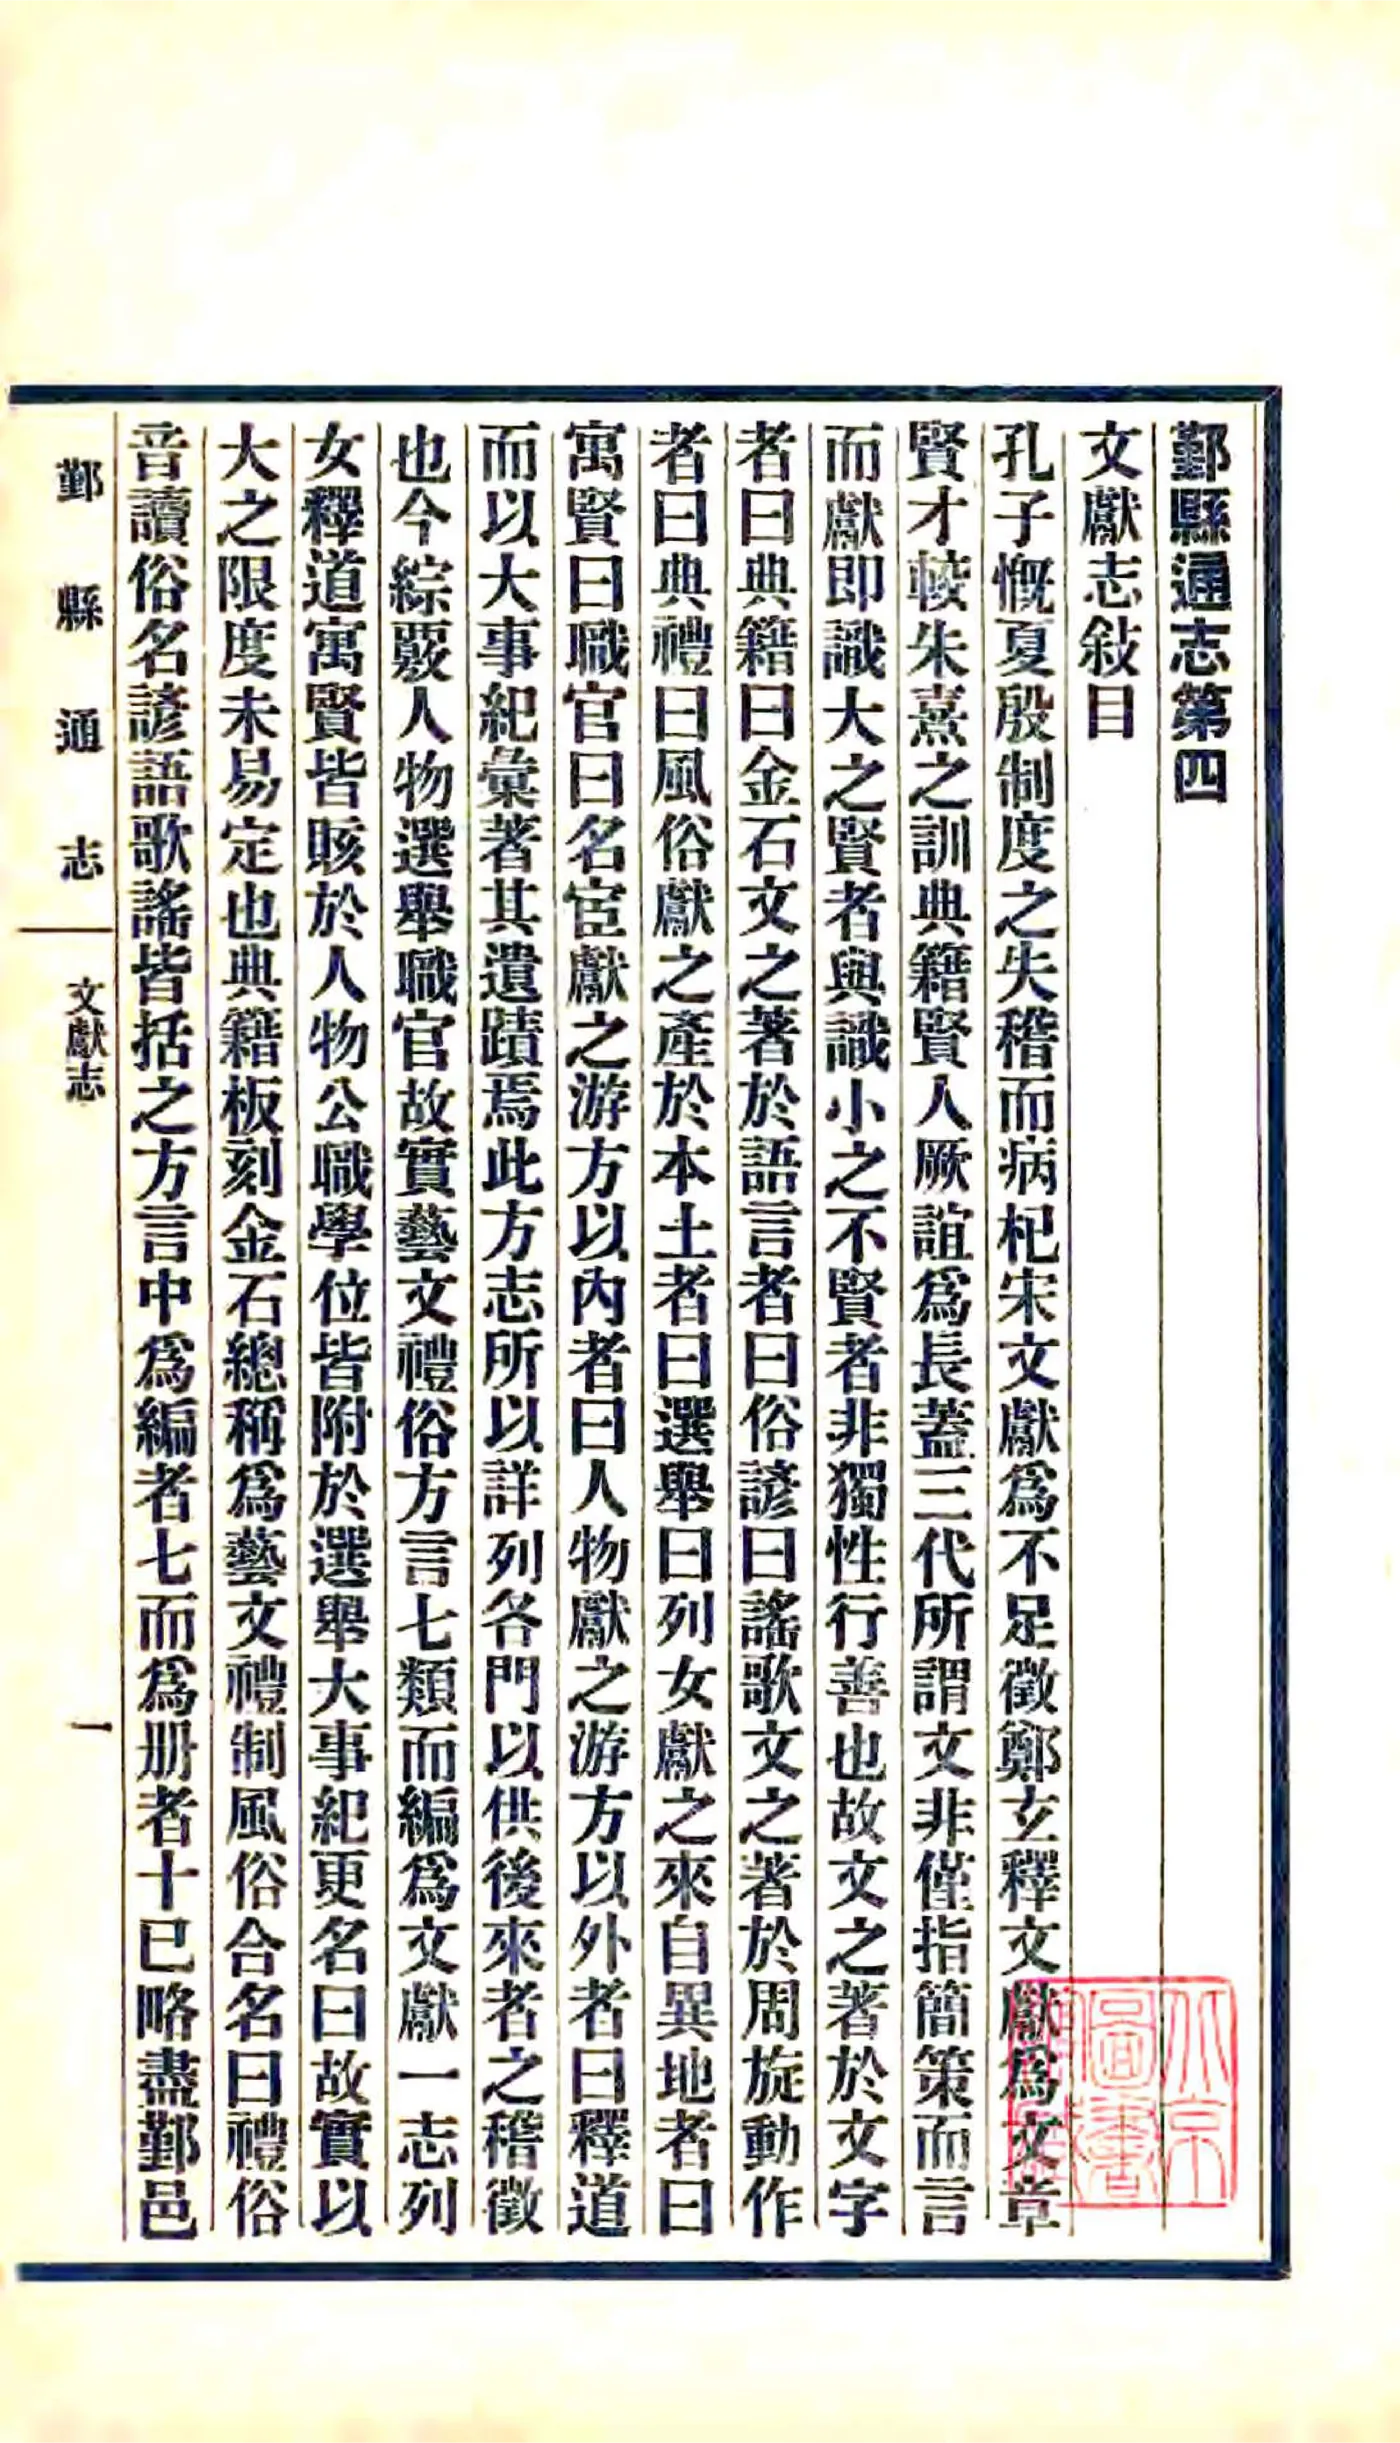 鄞縣通志第四
文獻志敍目
孔子慨夏殷制度之失稽而病杞宋文獻爲不足徵鄭玄釋文獻爲文章
賢才較朱熹之訓典籍賢人厥誼爲長蓋三代所謂文非僅指簡策而言
而獻即識大之賢者與識小之不賢者非獨性行善也故文之著於文字
者曰典籍曰金石文之著於語言者曰俗諺曰謠歌文之著於周旋動作
者曰典禮曰風俗獻之產於本土者曰選舉曰列女獻之來自異地者曰
寓賢曰職官曰名宦獻之游方以內者曰人物獻之游方以外者曰釋道
而以大事紀彙著其遺蹟焉此方志所以詳列各門以供後來者之稽徵
也今綜覈人物選舉職官故實藝文禮俗方言七類而編爲文獻一志列
女釋道寓賢皆賅於人物公職學位皆附於選舉大事紀更名曰故實以
大之限度未易定也典籍板刻金石總稱爲藝文禮制風俗合名曰禮俗
音讀俗名諺語歌謠皆括之方言中爲編者七而爲册者十已略盡鄞邑
鄞縣通志
文獻志
一
北京圖書